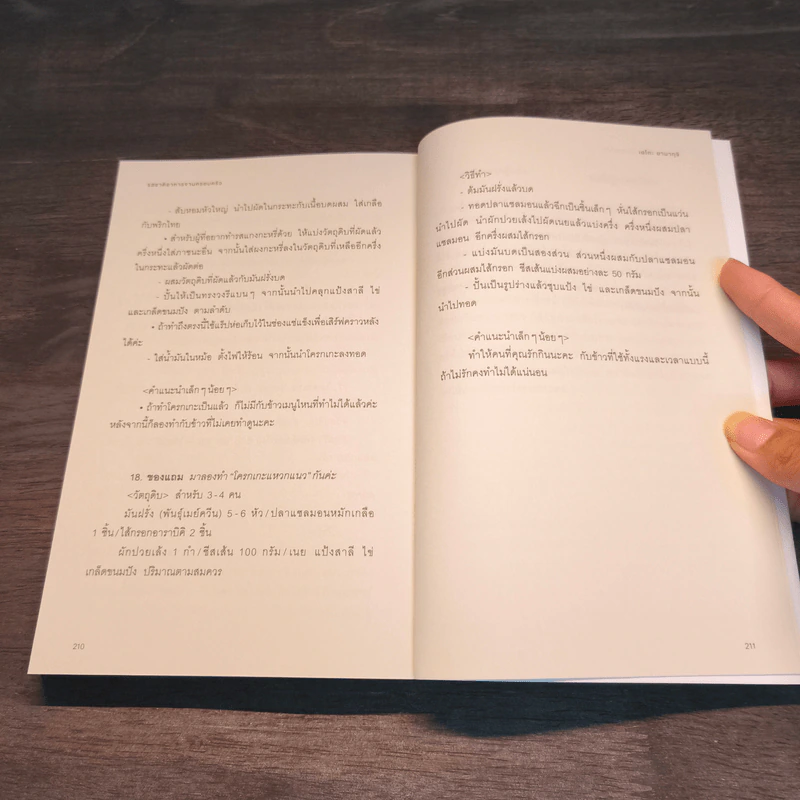 รสชาติอาหารจานครอบครัว
- สับหอมหัวใหญ่ นำไปผัดในกระทะกับเนื้อบดผสม ใส่เกลือ
กับพริกไทย
• สำหรับผู้ที่อยากทำรสมกกะหรี่ด้วย ให้แบ่งวัตถุดิบที่ผัดแล้ว
ครึ่งหนึ่งใส่ภาชนะอื่น จากนั้นใส่ผงกะหรี่ลงในวัตถุดิบที่เหลืออีกครึ่ง
ในกระทะแล้วผัดต่อ
- ผสมวัตถุดิบที่ผัดแล้วกับมันฝรั่งบด
- ปั้นให้เป็นทรงวงรีแบนๆ จากนั้นนำไปคลุกแป้งสาลี ไข่
และเกล็ดขนมปัง ตามลำดับ
• ถ้าทำถึงตรงนี้ใช้แร็ปห่อเก็บไว้ในช่องแช่แข็งเพื่อเสิร์ฟคราวหลัง
ได้ค่ะ
- ใส่น้ำมันในหม้อ ตั้งไฟให้ร้อน จากนั้นนำโครกเกะลงทอด
<คำแนะนำเล็กๆ น้อยๆ>
• ถ้าทำโครกเกะเป็นแล้ว ก็ไม่มีกับข้าวเมนูไหนที่ทำไม่ได้แล้วค่ะ
หลังจากนี้ก็ลองทำกับข้าวที่ไม่เคยทำดูนะคะ
18. ของแถม มาลองทำ "โครกเกะแหวกแนว" กันค่ะ
<วัตถุดิบ> สำหรับ 3-4 คน
มันฝรั่ง (พันธุ์เมย์ควีน) 5-6 หัว/ปลาแซลมอนหมักเกลือ
1 ชิ้น/ไส้กรอกอาราบิคิ 2 ชิ้น
ผักปวยเล้ง 1 กำ/ชีสเส้น 100 กรัม/เนย แป้งสาลี ไข่
เกล็ดขนมปัง ปริมาณตามสมควร
210
<วิธีทำ>
- ต้มมันฝรั่งแล้วบด
- ทอดปลาแซลมอนแล้วฉีกเป็นชิ้นเล็กๆ หั่นไส้กรอกเป็นแว่น
นำไปผัด นำผักปวยเล้งไปผัดเนยแล้วแบ่งครึ่ง ครึ่งหนึ่งผสมปลา
แซลมอน อีกครึ่งผสมไส้กรอก
- แบ่งมันบดเป็นสองส่วน ส่วนหนึ่งผสมกับปลาแซลมอน
อีกส่วนผสมไส้กรอก ชีสเส้นแบ่งผสมอย่างละ 50 กรัม
- ปั้นเป็นรูปร่างแล้วชุบแป้ง ไข่ และเกล็ดขนมปัง จากนั้น
นำไปทอด
<คำแนะนำเล็กๆ น้อยๆ>
ทำให้คนที่คุณรักกินนะคะ กับข้าวที่ใช้ทั้งแรงและเวลาแบบนี้
ถ้าไม่รักคงทำไม่ได้แน่นอน
211